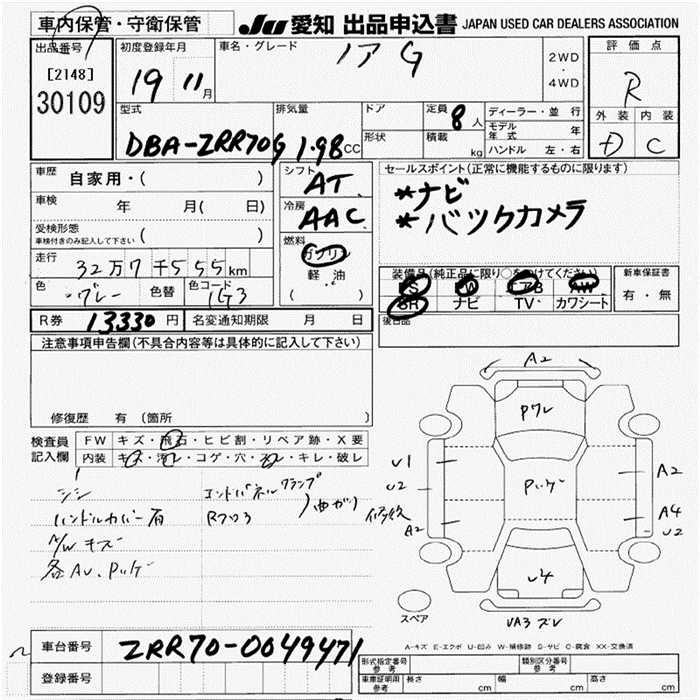 車内保管・守衛保管
JU 愛知 出品申込書 JAPAN USED CAR DEALERS ASSOCIATION
出品番号
[2148]
30109
初度登録年月
19 11月
車名・グレード
ノア G
2WD
・
4WD
評価点
R
外装 内装
D C
型式
DBA-ZRR70G
排気量
1.98 CC
ドア
形状
定員 8人
積載 kg
ディーラー・並行
モデル年式 年
ハンドル 左・右
車歴 自家用・( )
車検 年 月( 日)
受検形態
車検付きのみ記入して下さい ( )
走行 32万7千555km
色 グレー 色替 色コード 1G3
シフト AT
冷房 AAC
燃料 ガソリン
軽油
( )
セールスポイント(正常に機能するものに限ります)
*ナビ
*バックカメラ
装備品(純正品に限り○をつけてください)
PS PW エアB AW
SR ナビ TV カワシート
新車保証書
有・無
後日品
R券 13330円 名変通知期限 月 日
注意事項申告欄(不具合内容等は具体的に記入して下さい)
修復歴 有 (箇所 )
検査員
記入欄
FW キズ・飛石・ヒビ割・リペア跡・X要
内装 キズ・汚レ・コゲ・穴・スレ・キレ・破レ
ハンドルカバー有
A/W キズ
各AU、Pハゲ
エンドパネルクランプ
曲がり
A2
Pワレ
U1
U2
A2
Pハゲ
A2
A4
U2
U4
UA3 ズレ
スペア
A-キズ E-エクボ U-凹み W-補修跡 S-サビ C-腐食 XX-交換済
車台番号 ZRR70-0049471
登録番号
形式指定番号
参考
類別区分番号
参考
車庫証明用
参考
長さ cm 幅 cm 高さ cm